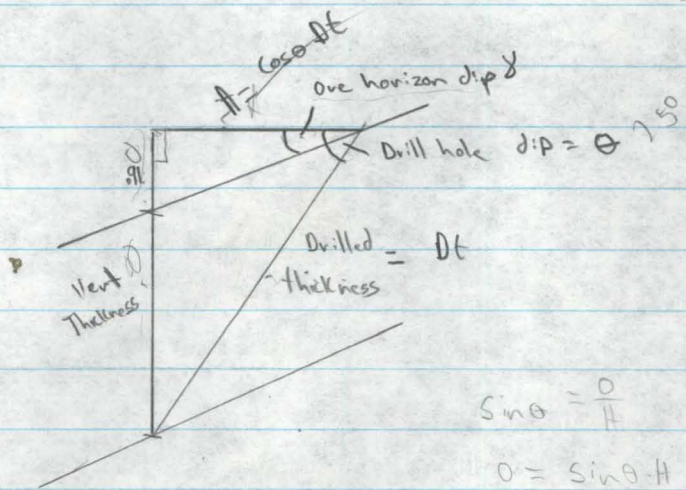 A = cosθ Dt
ore horizon dip γ
Drill hole dip = θ
50
.91
Drilled thickness = Dt
Vert
Thickness
sinθ = O/H
O = sinθ·H